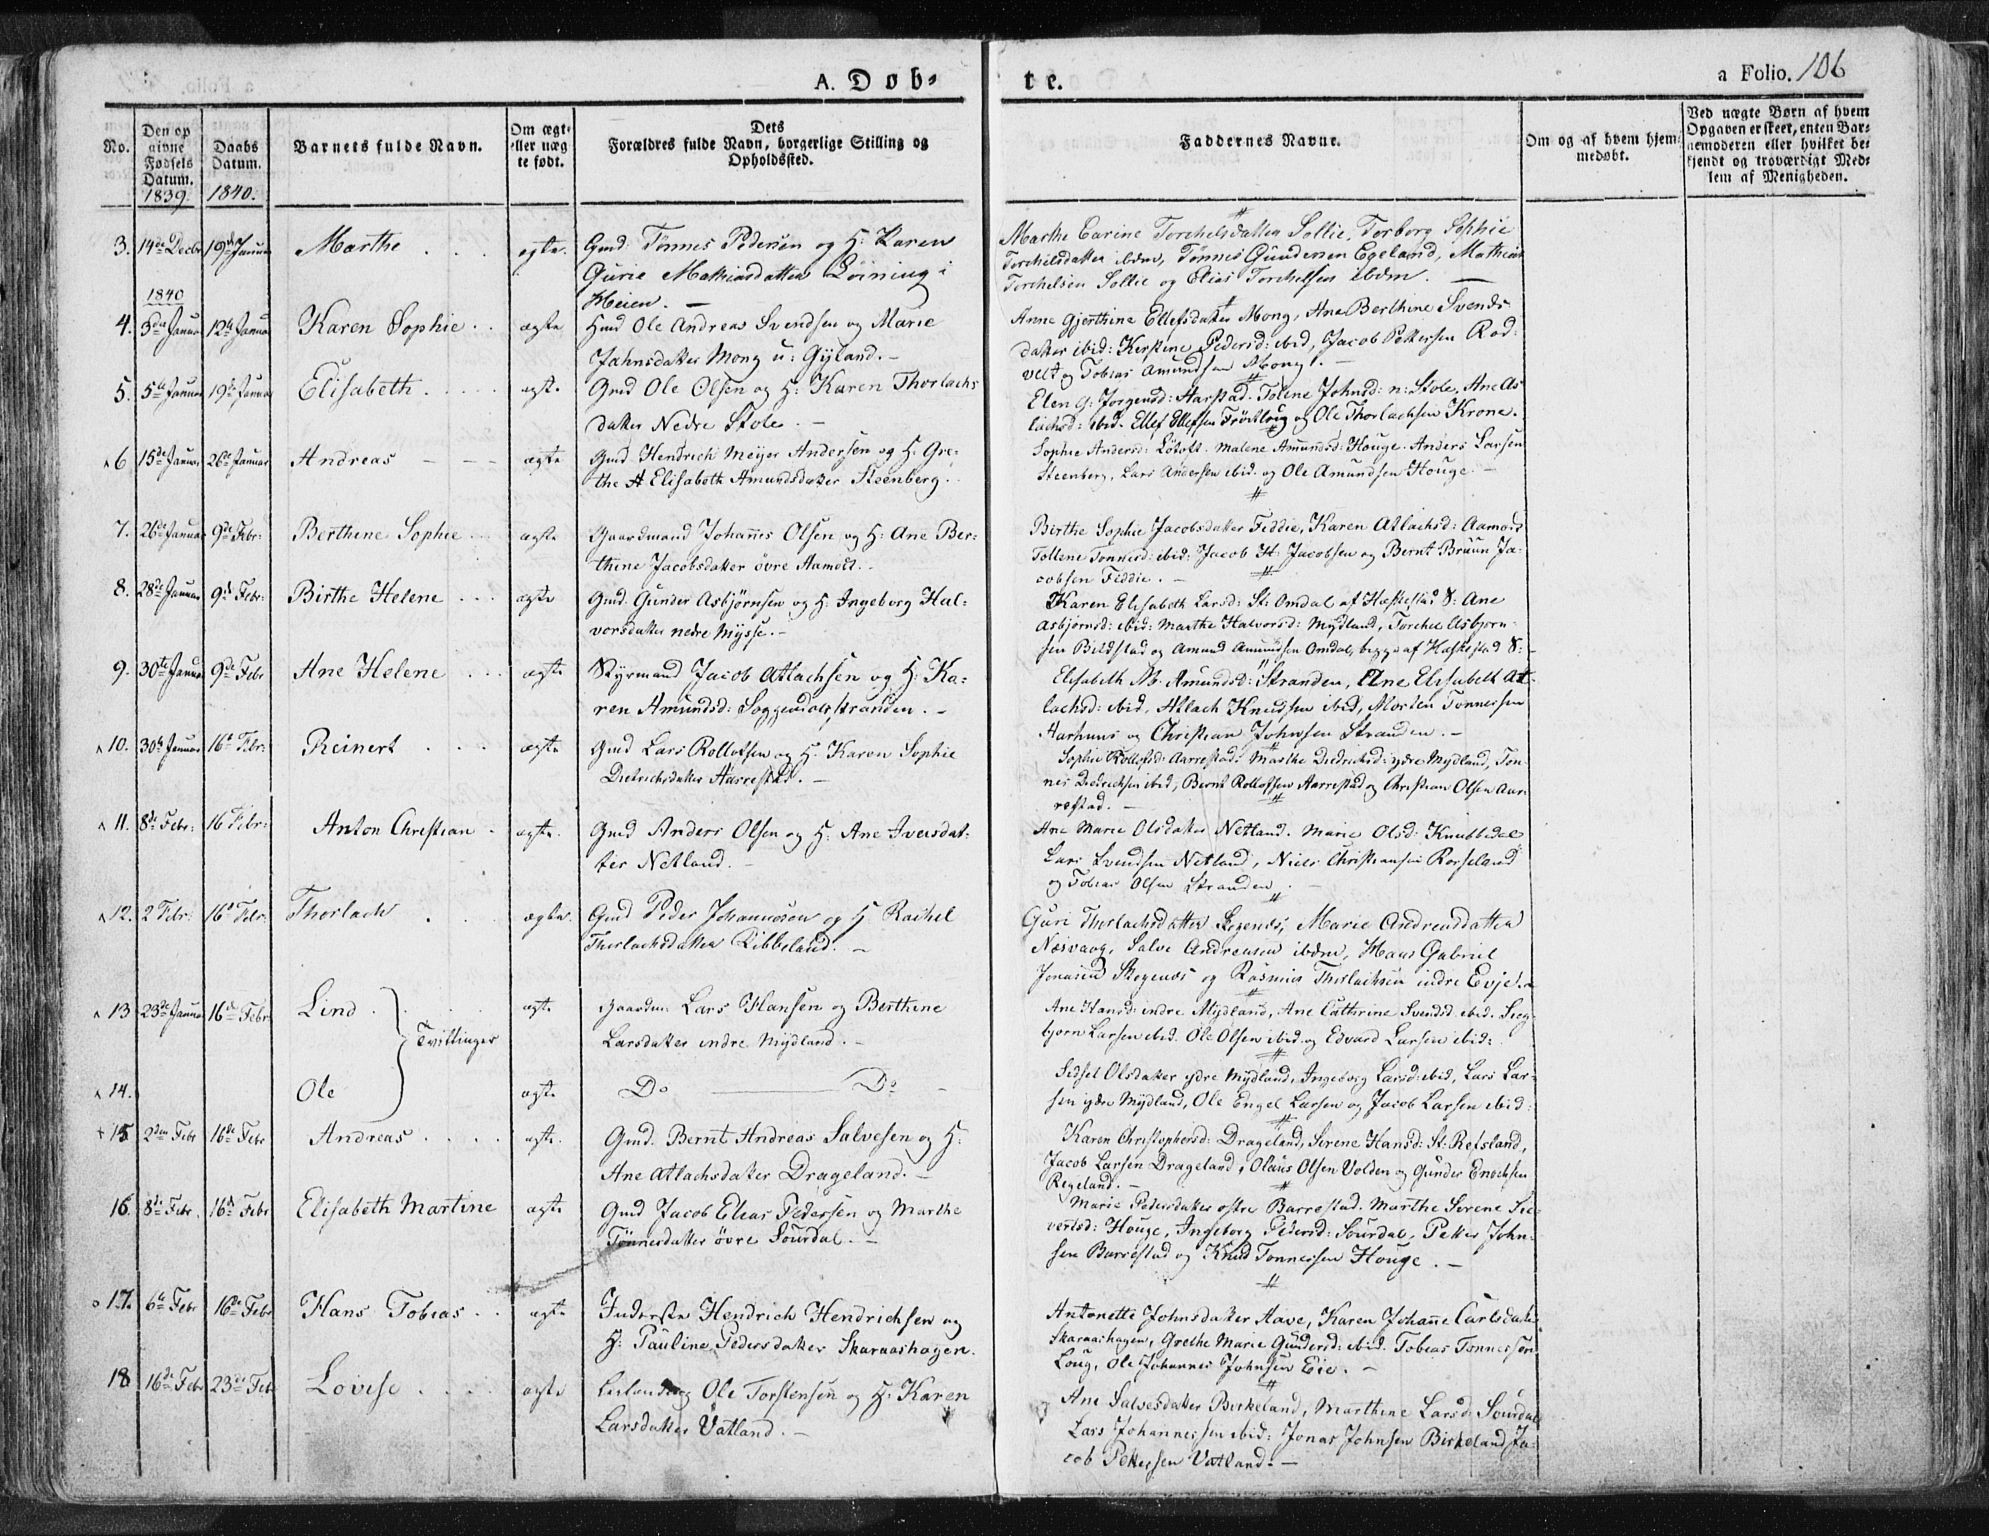 A. Døb-
te.
a Folio. 106
No.
Den op
givne
Fødsels
Datum.
1839.
Daabs
Datum.
1840.
Barnets fulde Navn.
Om ægt-
eller uæg
te født.
Dets
Forældres fulde Navn, borgerlige Stilling og
Opholdssted.
Faddernes Navne.
Om og af hvem hjem-
medøbt.
Ved uægte Børn af hvem
Opgaven er skeet, enten Bar-
nemoderen eller hvilket be-
kjendt og troværdigt Med-
lem af Menigheden.
3. 14de Decbr 19de Januar Marthe ægte. Gmd: Tønnes Pedersen og H: Karen
Gurie Mathiasdatter Løining i
Heien.
Marthe Carine Torchelsdatter Sollie, Torborg Sophie
Torchilsdatter ibdm, Tønnes Gundersen Egeland, Mathias
Torchelsen Sollie og Elias Torchelsen ibdm.
1840
4. 3die Januar 12te Januar Karen Sophie ægte Gmd Ole Andreas Svendsen og Marie
Jahnsdatter Mong u: Gyland.
Anne Gjerthine Ellefsdatter Mong, Ane Berthine Svends-
datter ibid: Kirstine Pedersd: ibid, Jacob Pettersen Rod-
velt og Tobias Amundsen Mong.
5. 5te Januar 19de Januar Elisabeth ægte Gmd Ole Olsen og H: Karen Thorlachs
datter Nedre Stole
Elen G: Jørgensd: Harstad. Tolene Johnsd: n: Stole, Ane As
lachsd: ibid. Ellef Ellefsen og Ole Thorlachsen Krone.
6 15de Januar 26de Januar Andreas ægte Gmd Hendrich Meyer Andersen og H. Gre-
the A Elisabeth Amundsdatter Steenberg.
Sophie Andersd: Løtoft. Malene Amundsd: Houge. Anders Larsen
Steenberg, Lars Andersen ibid. og Ole Amundsen Houge.
7. 26de Januar 9de Febr: Berthine Sophie ægte Gaardmand Johannes Olsen og H: Ane Ber-
thine Jacobsdatter øvre Aamodt.
Birthe Sophie Jacobsdatter Feddie, Karen Atlachsd: Aamodt
Tollene Tonnesd: ibid: Jacob H: Jacobsen og Bernt Bruun Ja-
cobsen Feddie.
8. 28de Januar 9de Febr: Birthe Helene ægte Gmd: Gunder Asbjørnsen og H: Ingeborg Hal-
vorsdatter nedre Mysse.
Karen Elisabeth Larsd: St: Omdal af Hæskestad S: Ane
Asbjørnsd: ibid: Marthe Halvorsd: Mydland, Torchel Asbjørn-
sen Bildstad og Amund Amundsen Omdal, begge af Hæskestad S:
9. 30te Januar 9de Febr Ane Helene ægte Styrmand Jacob Atlachsen og H: Ka-
ren Amundsd: Soggendalsstranden.
Elisabeth M. Amundsd: Stranden, Ane Elisabeth At-
lachsd: ibid, Atlach Knudsen ibid, Morten Tonnessen
Aarhuus og Christian Johnsen Stranden.
10. 30te Januar 16de Febr: Reinert ægte Gmd Lars Rollefsen og H. Karen Sophie
Dietrichsdatter Aarrestad.
Sophie Rollofsd: Aarrestad. Marthe Diedrichsd: ydre Mydland, Ton-
nes Diedrichsen ibid, Bernt Rollofsen Aarrestad og Christian Olsen Aar-
restad.
11. 8de Febr: 16 Febr: Anton Christian ægte. Gmd Anders Olsen og H: Ane Iversdat-
ter Netland.
Ane Marie Olsdatter Netland. Marie Olsd: Knubbedal
Lars Svendsen Netland, Niels Christiansen Rosseland
og Tobias Olsen Stranden.
12. 2 Febr: 16de Febr: Thorlach ægte. Gmd Peder Johannesen og H: Rachel
Thorlachsdatter Ribbeland.
Guri Thorlachsdatter Stegenæs, Marie Andreasdatter
Næsvaag, Salve Andreasen ibdm, Hans Gabriel
Jonasen Stegenæs og Rasmus Thorlachsen indre Evje.
13 23de Januar 16de Febr Lind ægte Gaardm: Lars Hansen og Berthine
Larsdatter indre Mydland.
Tvillinger
Ane Hansd: indre Mydland, Ane Cathrine Svendsd ibid. Sieg-
bjorn Larsen ibid. Ole Olsen ibid og Edvard Larsen ibid:
14. Ole ægte Do Do
Sidsel Olsdatter ydre Mydland, Ingeborg Larsd: ibid, Lars Lar-
sen ydre Mydland, Ole Engel Larsen og Jacob Larsen ibid:
15 2den Febr 16de Febr Andreas ægte. Gmd. Bernt Andreas Salvesen og H:
Ane Atlachsdatter Drageland.
Karen Christophersd: Drageland, Serene Hansd: St: Refsland,
Jacob Larsen Drageland, Olaus Olsen Volden og Gunder Enochsen
Regeland.
16 8de Febr. 16de Febr Elisabeth Martine ægte Gmd Jacob Elias Pedersen og Marthe
Tønnesdatter øvre Sourdal.
Marie Pedersdatter østre Barrestad. Marthe Serene Sie-
vertsd: Houge, Ingeborg Pedersd: Sourdal, Petter John-
sen Barrestad og Knud Tonnessen Houge.
17. 6te Febr 16de Febr Hans Tobias ægte Inderste Hendrich Hendrichsen og
H: Pauline Pedersdatter Skaraashagen.
Antonette Johnsdatter Aave, Karen Johanne Carlsdatter
Skaraashagen, Grethe Marie Gundersd: ibid. Tobias Tonnessen
Loug, Ole Johannes Johnsen Eie.
18 16de Febr 23de Feb Lovise ægte Ole Torstensen og H: Karen
Larsdatter Vatland.
Ane Salvesdatter Birkeland, Marthine Larsd Sourdal
Lars Johannessen ibid: Jonas Johnsen Birkeland, Ja-
cob Pettersen Vatland.